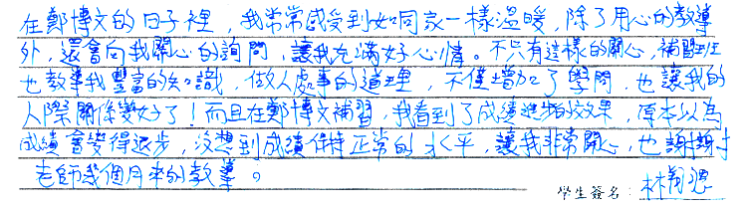 在鄭博文的日子裡，我常常感受到如同家一樣溫暖，除了用心的教導
外，還會向我關心的詢問，讓我充滿好心情。不只有這樣的關心，補習班
也教導我豐富的知識，做人處事的道理，不僅增加了學問，也讓我的
人際關係變好了！而且在鄭博文補習，我看到了成績進步的效果，原本以為
成績會變得退步，沒想到成績保持正常的水平，讓我非常開心，也謝謝
老師幾個月來的教導。
學生簽名：林